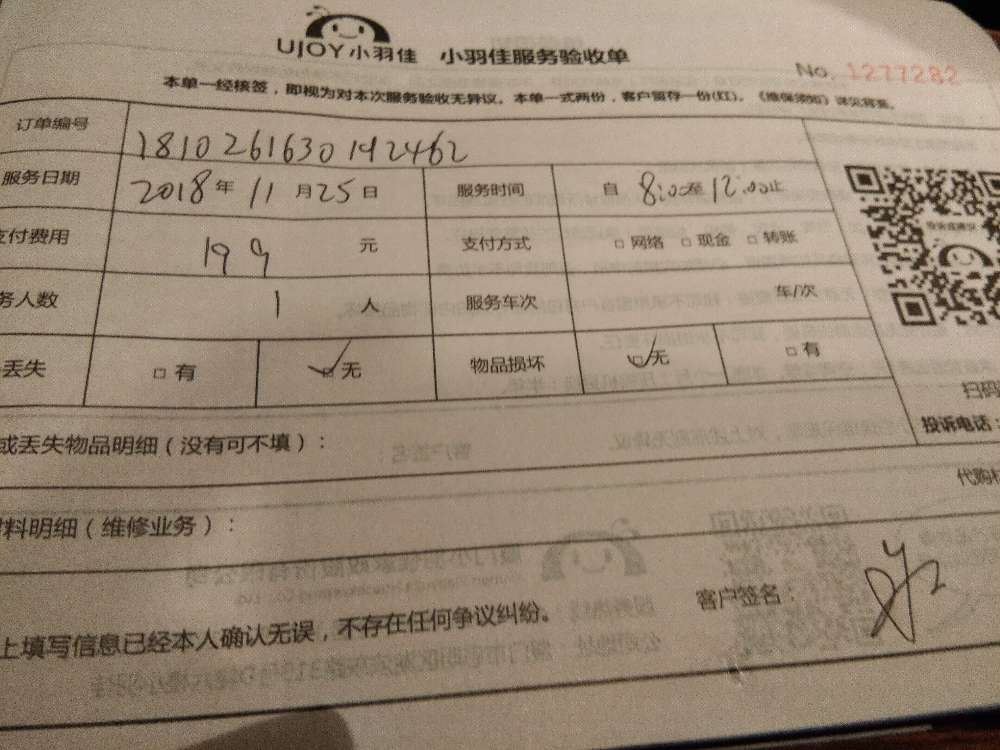 UJOY小羽佳 小羽佳服务验收单
No. 1277282
本单一经核签，即视为对本次服务验收无异议。本单一式两份，客户留存一份(红)。《维保须知》详见背面。
订单编号 1810261630192462
服务日期 2018年 11月25日 服务时间 自 8:00至12:00止
支付费用 199 元 支付方式 □ 网络 □ 现金 □ 转账
务人数 1 人 服务车次 车/次
丢失 □ 有 ☑ 无 物品损坏 ☑ 无 □ 有
扫码
投诉电话：
或丢失物品明细（没有可不填）：
代购
料明细（维修业务）：
上填写信息已经本人确认无误，不存在任何争议纠纷。 客户签名：